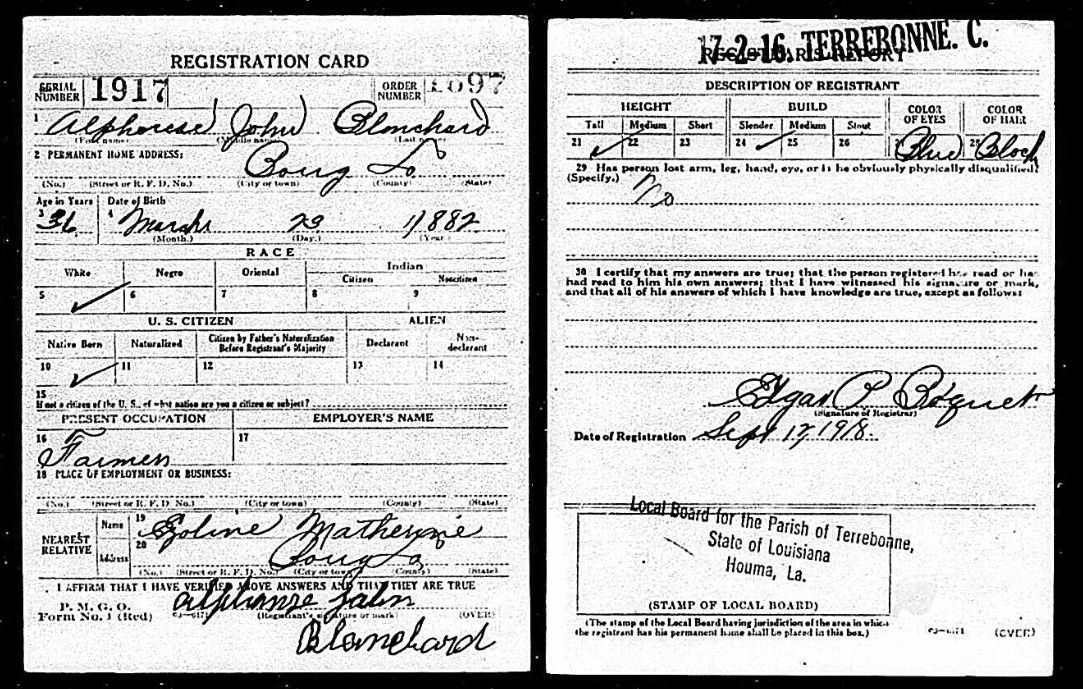 REGISTRATION CARD
SERIAL NUMBER 1917 ORDER NUMBER 1697
1 Alphonse John Blanchard
(First name) (Middle name) (Last name)
2 PERMANENT HOME ADDRESS:
Bourg La
(No.) (Street or R. F. D. No.) (City or town) (County) (State)
Age in Years Date of Birth
3 36 4 March 23 1882
(Month.) (Day.) (Year.)
RACE
White Negro Oriental Indian
Citizen Noncitizen
5 ✓ 6 7 8 9
U. S. CITIZEN ALIEN
Native Born Naturalized Citizen by Father's Naturalization Before Registrant's Majority Declarant Non-declarant
10 ✓ 11 12 13 14
15
If not a citizen of the U. S., of what nation are you a citizen or subject?
PRESENT OCCUPATION EMPLOYER'S NAME
16 Farmer 17
18 PLACE OF EMPLOYMENT OR BUSINESS:
(No.) (Street or R. F. D. No.) (City or town) (County) (State)
NEAREST RELATIVE Name 19 Matherne
Address 20 Bourg La
(No.) (Street or R. F. D. No.) (City or town) (County) (State)
I AFFIRM THAT I HAVE VERIFIED ABOVE ANSWERS AND THAT THEY ARE TRUE
P. M. G. O.
Form No. 1 (Red) (Registrant's signature or mark) (OVER)
Alphonse John
Blanchard
17-2-16. TERREBONNE. C.
REGISTRAR'S REPORT
DESCRIPTION OF REGISTRANT
HEIGHT BUILD COLOR OF EYES COLOR OF HAIR
Tall Medium Short Slender Medium Stout
21 ✓ 22 23 24 ✓ 25 26 27 Blue 28 Black
29 Has person lost arm, leg, hand, eye, or is he obviously physically disqualified?
(Specify.) No
30 I certify that my answers are true; that the person registered has read or has
had read to him his own answers; that I have witnessed his signature or mark,
and that all of his answers of which I have knowledge are true, except as follows:
Edgar P. Boquet
(Signature of Registrar)
Date of Registration Sept 12 1918
Local Board for the Parish of Terrebonne,
State of Louisiana
Houma, La.
(STAMP OF LOCAL BOARD)
(The stamp of the Local Board having jurisdiction of the area in which
the registrant has his permanent home shall be placed in this box.)
(OVER)